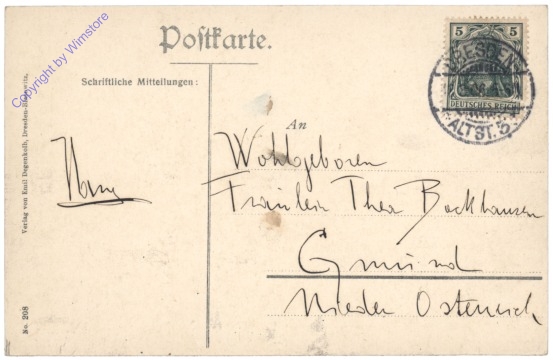 Postkarte.
Schriftliche Mitteilungen:
An
Wohlgeboren
Fräulein Thea Backhausen
Gmünd
Nieder Österreich
5 5
DEUTSCHES REICH
DRESDEN
ALTST. 5.
Verlag von Emil Degenkolb, Dresden-
No. 298
Copyright by Wimstore